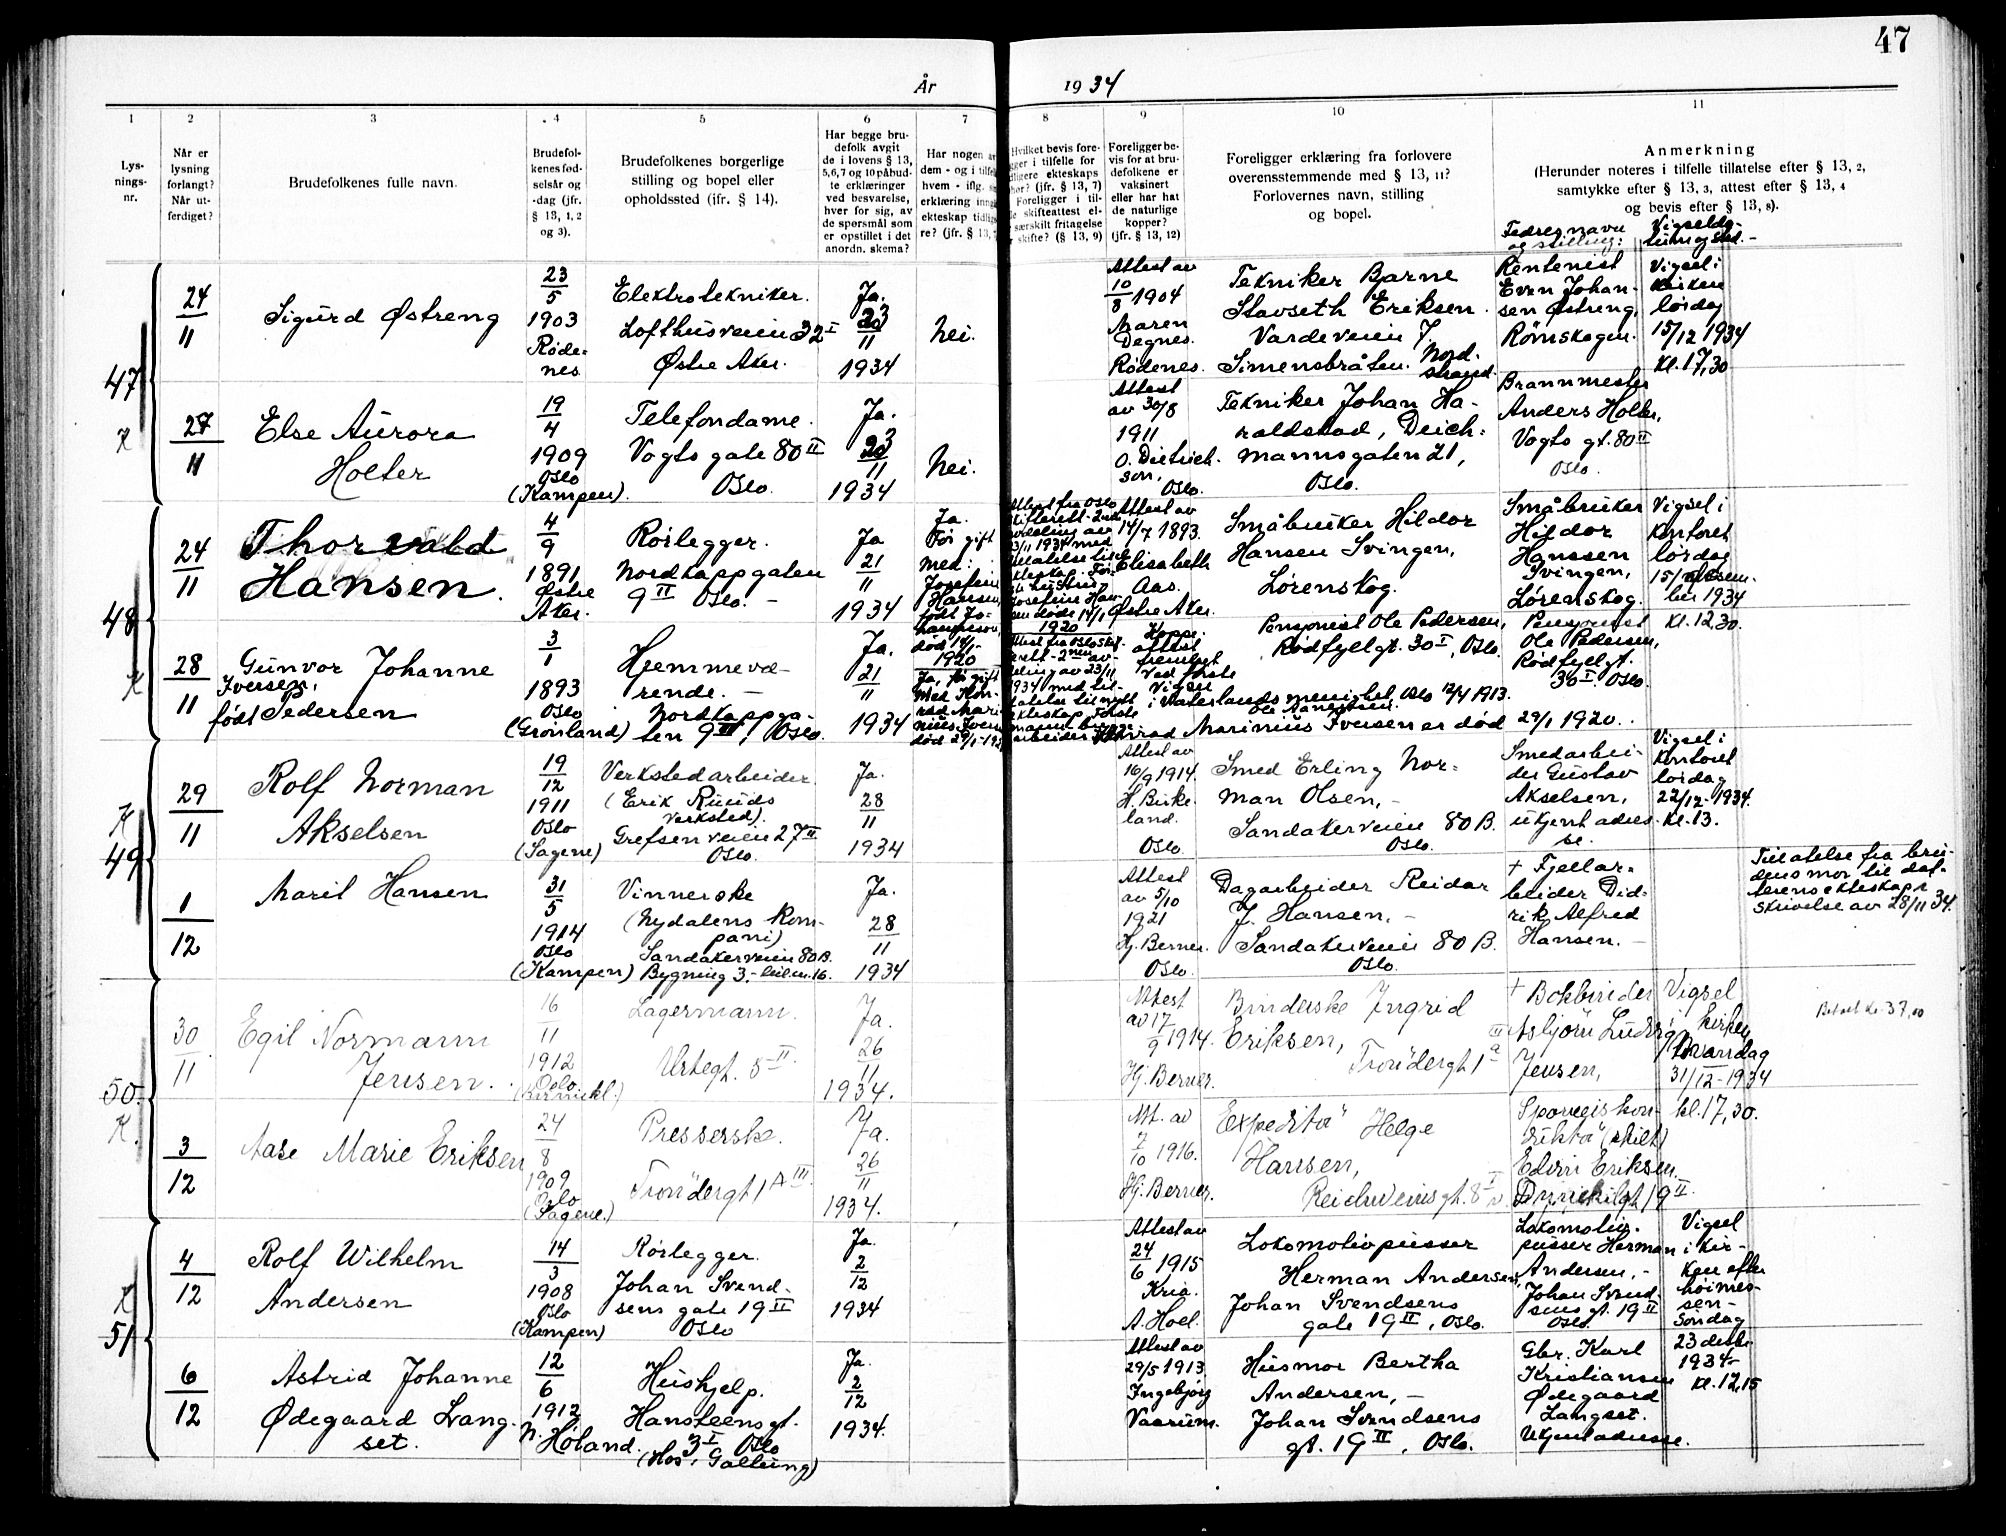 47
År 1934
1
2
3
4
5
6
7
8
9
10
11
Lys-
nings-
nr.
Når er
lysning
forlangt?
Når ut-
ferdiget?
Brudefolkenes fulle navn.
Brudefol-
kenes fød-
selsår og
-dag (jfr.
§ 13, 1, 2
og 3).
Brudefolkenes borgerlige
stilling og bopel eller
opholdssted (jfr. § 14).
Har begge bru-
defolk avgit
de i lovens § 13,
5,6,7 og 10 påbud-
te erklæringer
ved besvarelse,
hver for sig, av
de spørsmål som
er opstillet i det
anordn. skema?
Har nogen
dem - og i
hvem - iflg.
erklæring
ekteskap
re? (jfr. § 13,
Hvilket bevis fore-
i tilfelle for
ekteskaps
(jfr. § 13, 7)
Foreligger i til-
skifteattest el-
særskilt fritagelse
skifte? (§ 13, 9)
Foreligger be-
vis for at bru-
defolkene er
vaksinert
eller har hat
de naturlige
kopper?
(jfr. § 13, 12)
Foreligger erklæring fra forlovere
overensstemmende med § 13, 11?
Forlovernes navn, stilling
og bopel.
Anmerkning
(Herunder noteres i tilfelle tillatelse efter § 13, 2,
samtykke efter § 13, 3, attest efter § 13, 4
og bevis efter § 13, 8).
Fedres navn
og stilling:
Vigselda-
tum og sted.-
47
24
11
Sigurd Østreng
23
5
1903
Røde-
nes
Elektrotekniker.
Lofthusveien 32 I
Østre Aker.
Ja.
23
11
1934
Nei.
Attest av
10
8 1904
Maren
Degnes.
Rödenes.
Tekniker Bjarne
Stavseth Eriksen.
Vardeveien 7.
Simensbråten. Nord-
strand.
Rentenist
Even Johan-
sen Østreng,
Rømskogen.
Vigsel i
kirken
lørdag
15/12 1934
kl. 17,30
27
11
Else Aurora
Holter
19
4
1909
Oslo
(Kampen).
Telefondame.
Vogts gate 80 II
Oslo.
Ja.
23
11
1934
Nei.
Attest
av 30/8
1911
O. Dietrich-
son,
Oslo.
Tekniker Johan Ha-
raldstad, Deich-
mannsgaten 21,
Oslo.
Brannmester
Anders Holter,
Vogts gt. 80 II
Oslo.
48
24
11
Thorvald
Hansen.
4
9
1891
Østre
Aker.
Rørlegger.
Nordkappgaten
9 II Oslo. -
Ja
21
11
1934
Ja.
Før gift
med:
Josefine
Hansen,
født Jo-
hannesen,
død 14/1-
1920
Attest av
14/7 1893.
Elisabeth
Aas.
Østre Aker.
Småbruker Hildor
Hansen Svingen,
Lørenskog.
Småbruker
Hildor
Hanssen
Svingen,
Lørenskog.
Vigsel i
kontoret
lørdag
15/ desem-
ber 1934
kl. 12,30.
28
11
Gunvor Johanne
Iversen,
født Pedersen
3
1
1893
Oslo
(Grønland)
Hjemmevæ-
rende. -
Nordkappga-
ten 9 III, Oslo.
Ja.
21
11
1934
Ja, før gift
med Kon-
rad Mari-
nius Iversen
Koppe-
attest
fremlagt
ved første
vigsel
i Vaterlands menighet, Oslo 12/4 1913.
Marinius Iversen er død 29/1 1920.
Pensjonist Ole Pedersen,
Rødfyllgt. 30 I, Oslo.
Pensjonist
Ole Pedersen,
Rødfyllgt.
30 I. Oslo.
49
29
11
Rolf Norman
Akselsen
19
12
1911
Oslo
(Sagene)
Verkstedarbeider.
(Erik Ruuds
verksted).
Grefsenveien 27 II
Oslo.
Ja.
28
11
1934
Attest av
16/9 1914.
H. Birke-
land.
Oslo.
Smed Erling Nor-
man Olsen, -
Sandakerveien 80 B.
Oslo.
Smedarbei-
der Gustav
Akselsen,
ukjent adres-
se.
Vigsel i
kontoret
lørdag
22/12-1934.
kl. 13.
1
12
Marit Hansen
31
5
1914
Oslo
(Kampen)
Vinnerske
(Nydalens Kom-
pani)
Sandakerveien 80 B.
Bygning 3.- leil. nr. 16.
Ja.
28
11
1934
Attest
av 5/10
1921
Hj. Berner.
Oslo.
Dagarbeider Reidar
J. Hansen, -
Sandakerveien 80 B.
Oslo.
+ Fjellar-
beider Did-
rik Alfred
Hansen. -
Tillatelse fra bru-
dens mor til dat-
terens ekteskap i
skrivelse av 28/11 34.
50.
K.
30
11
Egil Normann
Jensen.
16
11
1912
Oslo
Lagermann.
Urtegt. 5 II.
Ja.
26
11
1934.
Attest
av 17
9 1914.
Hj. Berner.
Binderske Ingrid
Eriksen,
Trondergt 1 a III
+ Bokbinder
Asbjørn Ludvig
Jensen,
Vigsel
i kirken
mandag
31/12-1934
kl. 17,30.
Betalt kr. 37,00
3
12
Aase Marie Eriksen
24
8
1909
Oslo
(Sagene.)
Presserske.
Trondergt 1 A III
Ja.
26
11
1934.
Att. av
7
10 1916.
Hj. Berner.
Expeditør Helge
Hansen,
Reichweinsgt. 8 I
Sporveiskon-
duktør (skilt)
Edvin Eriksen.
51
4
12
Rolf Wilhelm
Andersen
14
3
1908
Oslo
(Kampen)
Rørlegger.
Johan Svend-
sens gate 19 II
Oslo
Ja.
2
12
1934
Attest av
24
6 1915
Kria.
A. Hoel.
Lokomotivpusser
Herman Andersen,
Johan Svendsens
gate 19 II, Oslo.
Lokomotiv-
pusser Herman
Andersen, -
Johan Svend-
sens gt. 19 II
Oslo.
Vigsel
i kir-
ken efter
høimes-
sen -
Søndag
23 desbr
1934-
kl. 12,15
6
12
Astrid Johanne
Ødegaard Lang-
set.
12
6
1912
N. Høland.
Hushjelp.
Hansteensgt.
3 I Oslo
(Hos: Gallung)
Ja.
2
12
1934.
Attest av
29/5 1913
Ingebjørg
Vaarum.
Husmor Bertha
Andersen, -
Johan Svendsens
gt. 19 II, Oslo.
Gbr. Karl
Kristiansen
Ødegaard
Langset.
Ukjent adresse.